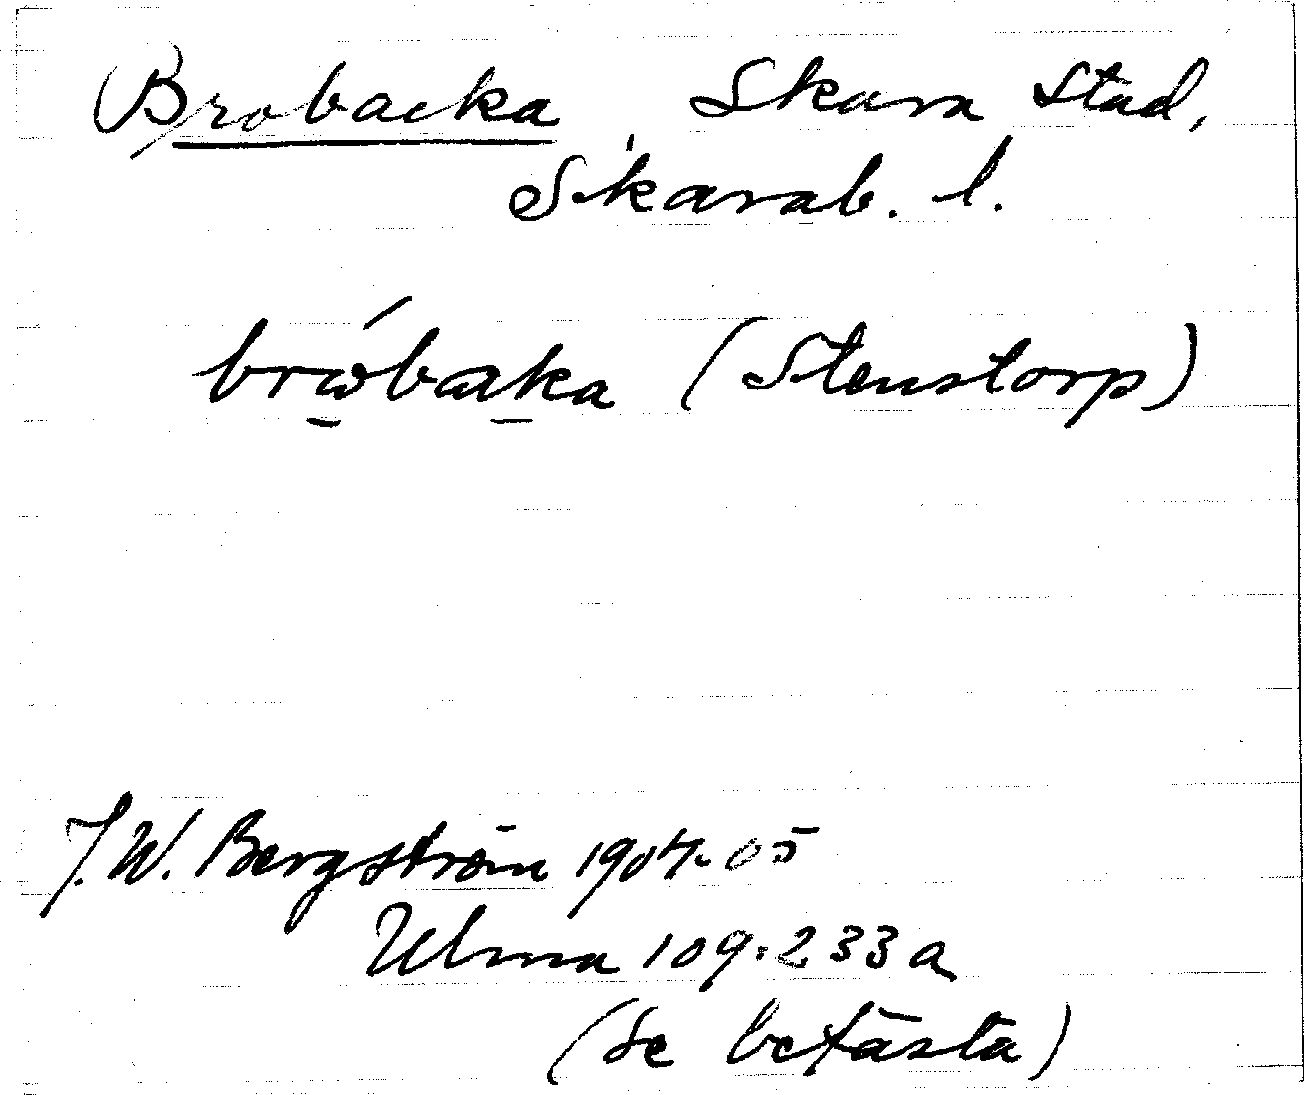 Brobacka, Skara stad,
Skarab. l.
brώ̱bak̠ka (Stenstorp)
J. W. Bergström 1904-05
Ulma 109.233a
(se befästa)